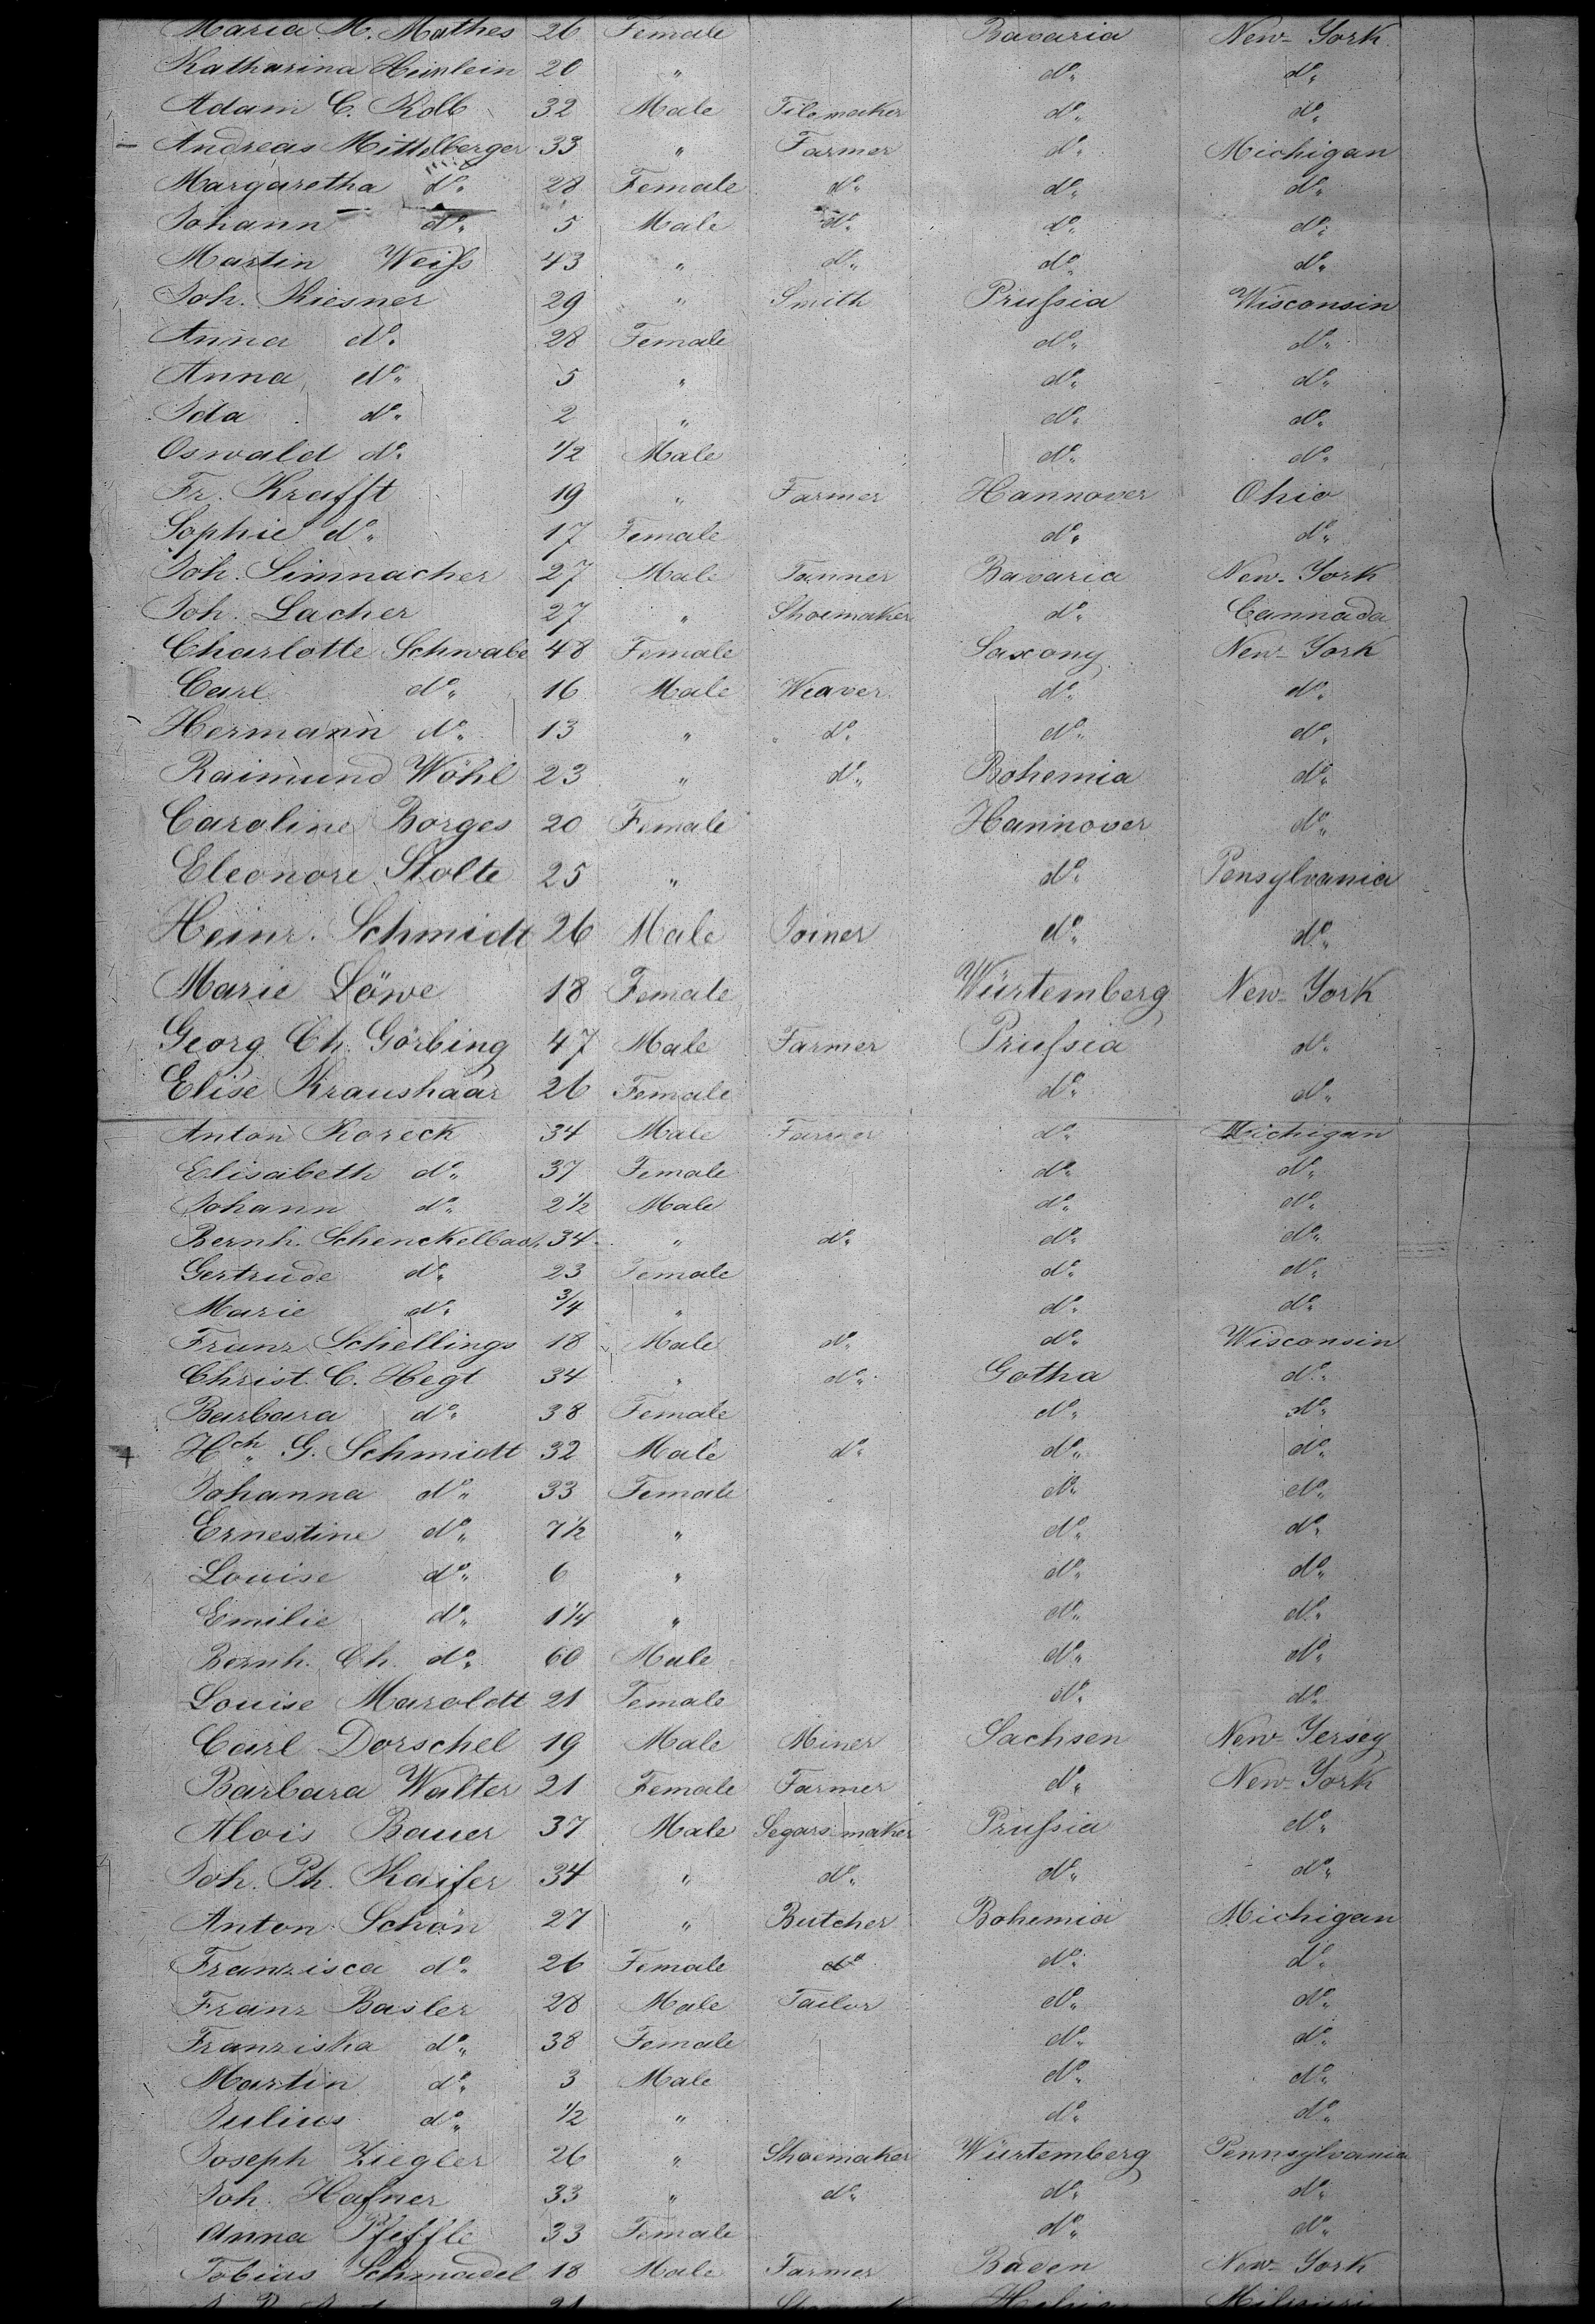 Maria M. Mathes 26 Female Bavaria New-York
Katharina Heinlein 20 " do do
Adam C. Kolb 32 Male Tilemaker do do
Andreas Mittelberger 33 " Farmer do Michigan
Margaretha do 28 Female do do do
Johann do 5 Male do do do
Martin Weiſs 43 " do do do
Joh. Kiesner 29 " Smith Pruſsia Wisconsin
Anna do 28 Female do do
Anna do 5 " do do
Ida do 2 " do do
Oswald do 1/2 Male do do
Fr. Krafft 19 " Farmer Hannover Ohio
Sophie do 17 Female do do
Joh. Simnacher 27 Male Tanner Bavaria New-York
Joh. Lacher 27 " Shoemaker do Cannada
Charlotte Schwabe 48 Female Saxony New-York
Carl do 16 Male Weaver do do
Hermann do 13 " do do do
Raimund Wöhl 23 " do Bohemia do
Caroline Borges 20 Female Hannover do
Eleonore Stolte 25 " do Pensylvania
Heinr. Schmidt 26 Male Joiner do do
Marie Löwe 18 Female Würtemberg New-York
Georg Ch. Görbing 47 Male Farmer Pruſsia do
Elise Kraushaar 26 Female do do
Anton Koreck 34 Male Farmer do Michigan
Elisabeth do 37 Female do do
Johann do 2 1/2 Male do do
Bernh. Schenckelbach 34 " do do do
Gertrude do 23 Female do do
Marie do 3/4 " do do
Franz Schellings 18 Male do do Wisconsin
Christ. C. Hegt 34 " do Gotha do
Barbara do 38 Female do do
Hch. G. Schmidt 32 Male do do do
Johanna do 33 Female do do
Ernestine do 7 1/2 " do do
Louise do 6 " do do
Emilie do 1 1/4 " do do
Bernh. Ch. do 60 Male do do
Louise Maroldt 21 Female do do
Carl Dorschel 19 Male Miner Sachsen New-Yersey
Barbara Walter 21 Female Farmer do New-York
Alois Bauer 37 Male Segars maker Pruſsia do
Joh. Ph. Kaifer 34 " do do do
Anton Schön 27 " Butcher Bohemia Michigan
Franzisca do 26 Female do do do
Franz Basler 28 Male Tailor do do
Franziska do 38 Female do do
Martin do 3 Male do do
Julius do 1/2 " do do
Joseph Ziegler 26 " Shoemaker Würtemberg Pennsylvania
Joh. Hafner 33 " do do do
Anna Pfeffle 33 Female do do
Tobias Schmadel 18 Male Farmer Baden New-York
21